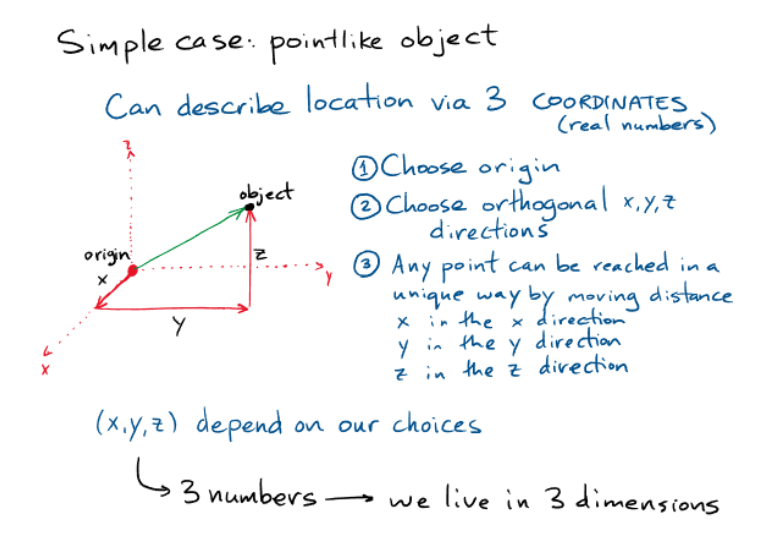 Simple case: pointlike object
Can describe location via 3 COORDINATES
(real numbers)
z
object
origin
x
z
y
y
x
① Choose origin
② Choose orthogonal x,y,z
directions
③ Any point can be reached in a
unique way by moving distance
x in the x direction
y in the y direction
z in the z direction
(x,y,z) depend on our choices
3 numbers → we live in 3 dimensions